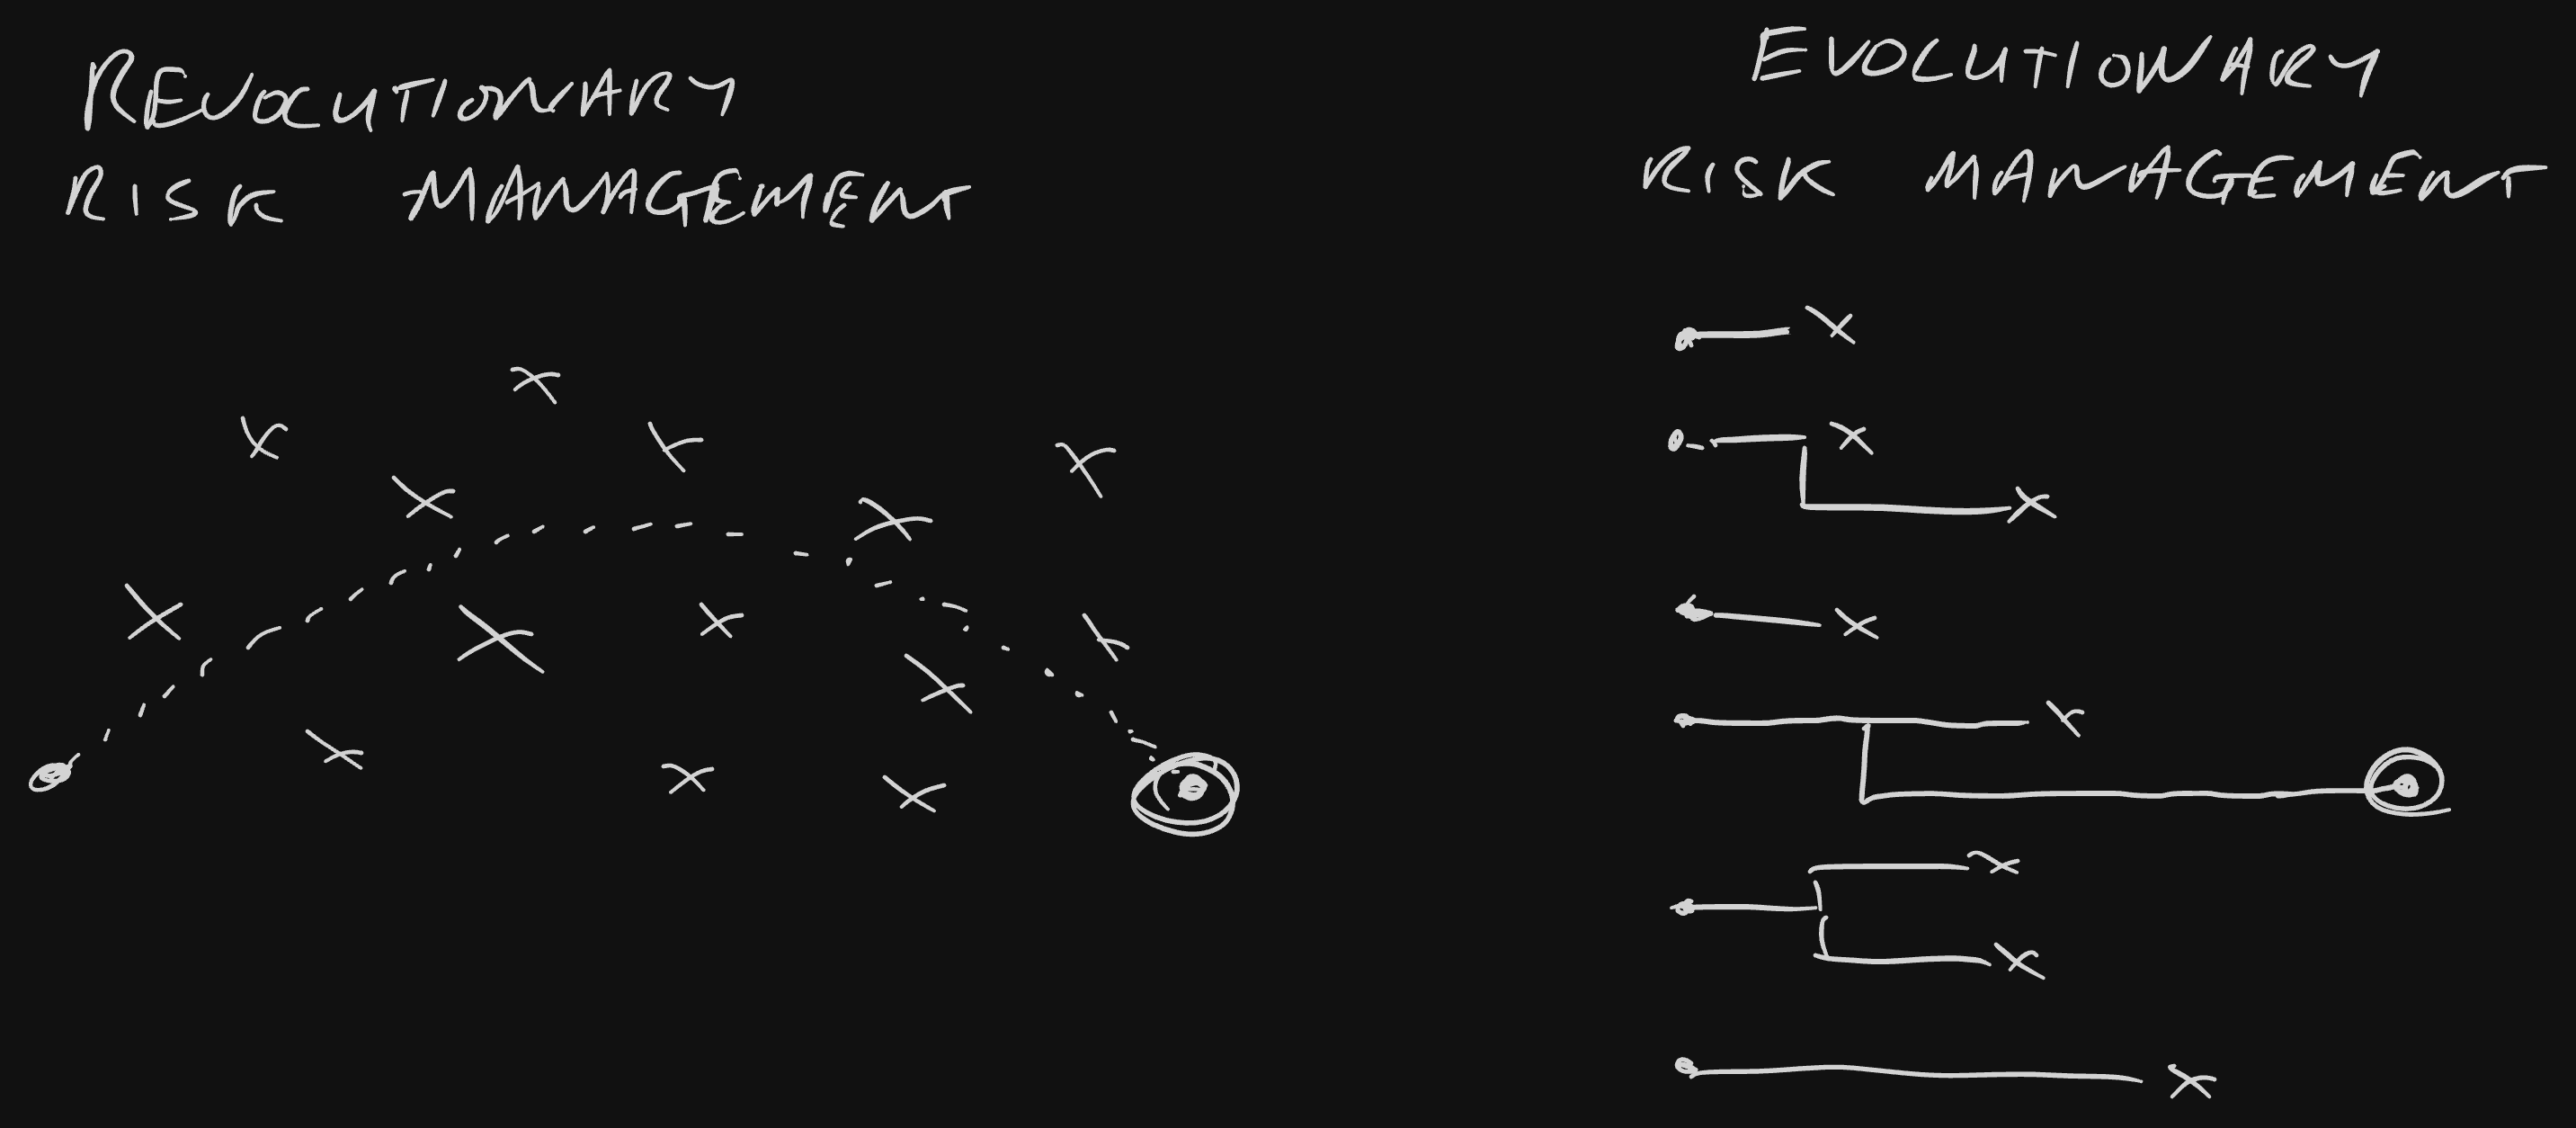 REVOLUTIONARY
RISK MANAGEMENT
EVOLUTIONARY
RISK MANAGEMENT